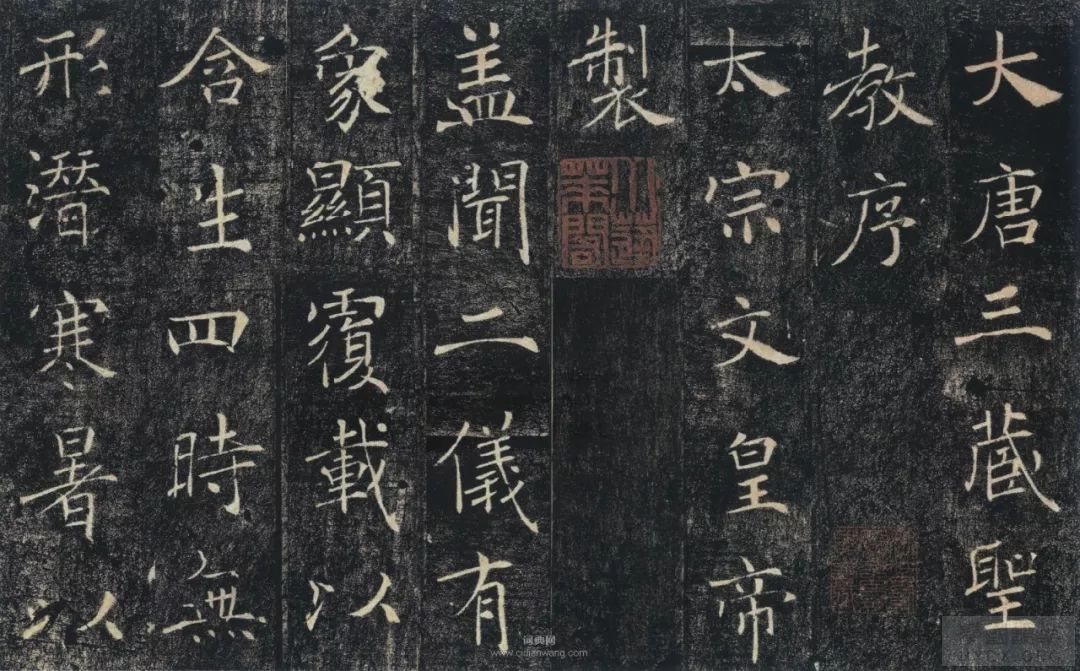 大唐三藏聖
教序
太宗文皇帝
製
盖聞二儀有
象顯覆載以
含生四時無
形潛寒暑以
词典网
www.cidianwang.com